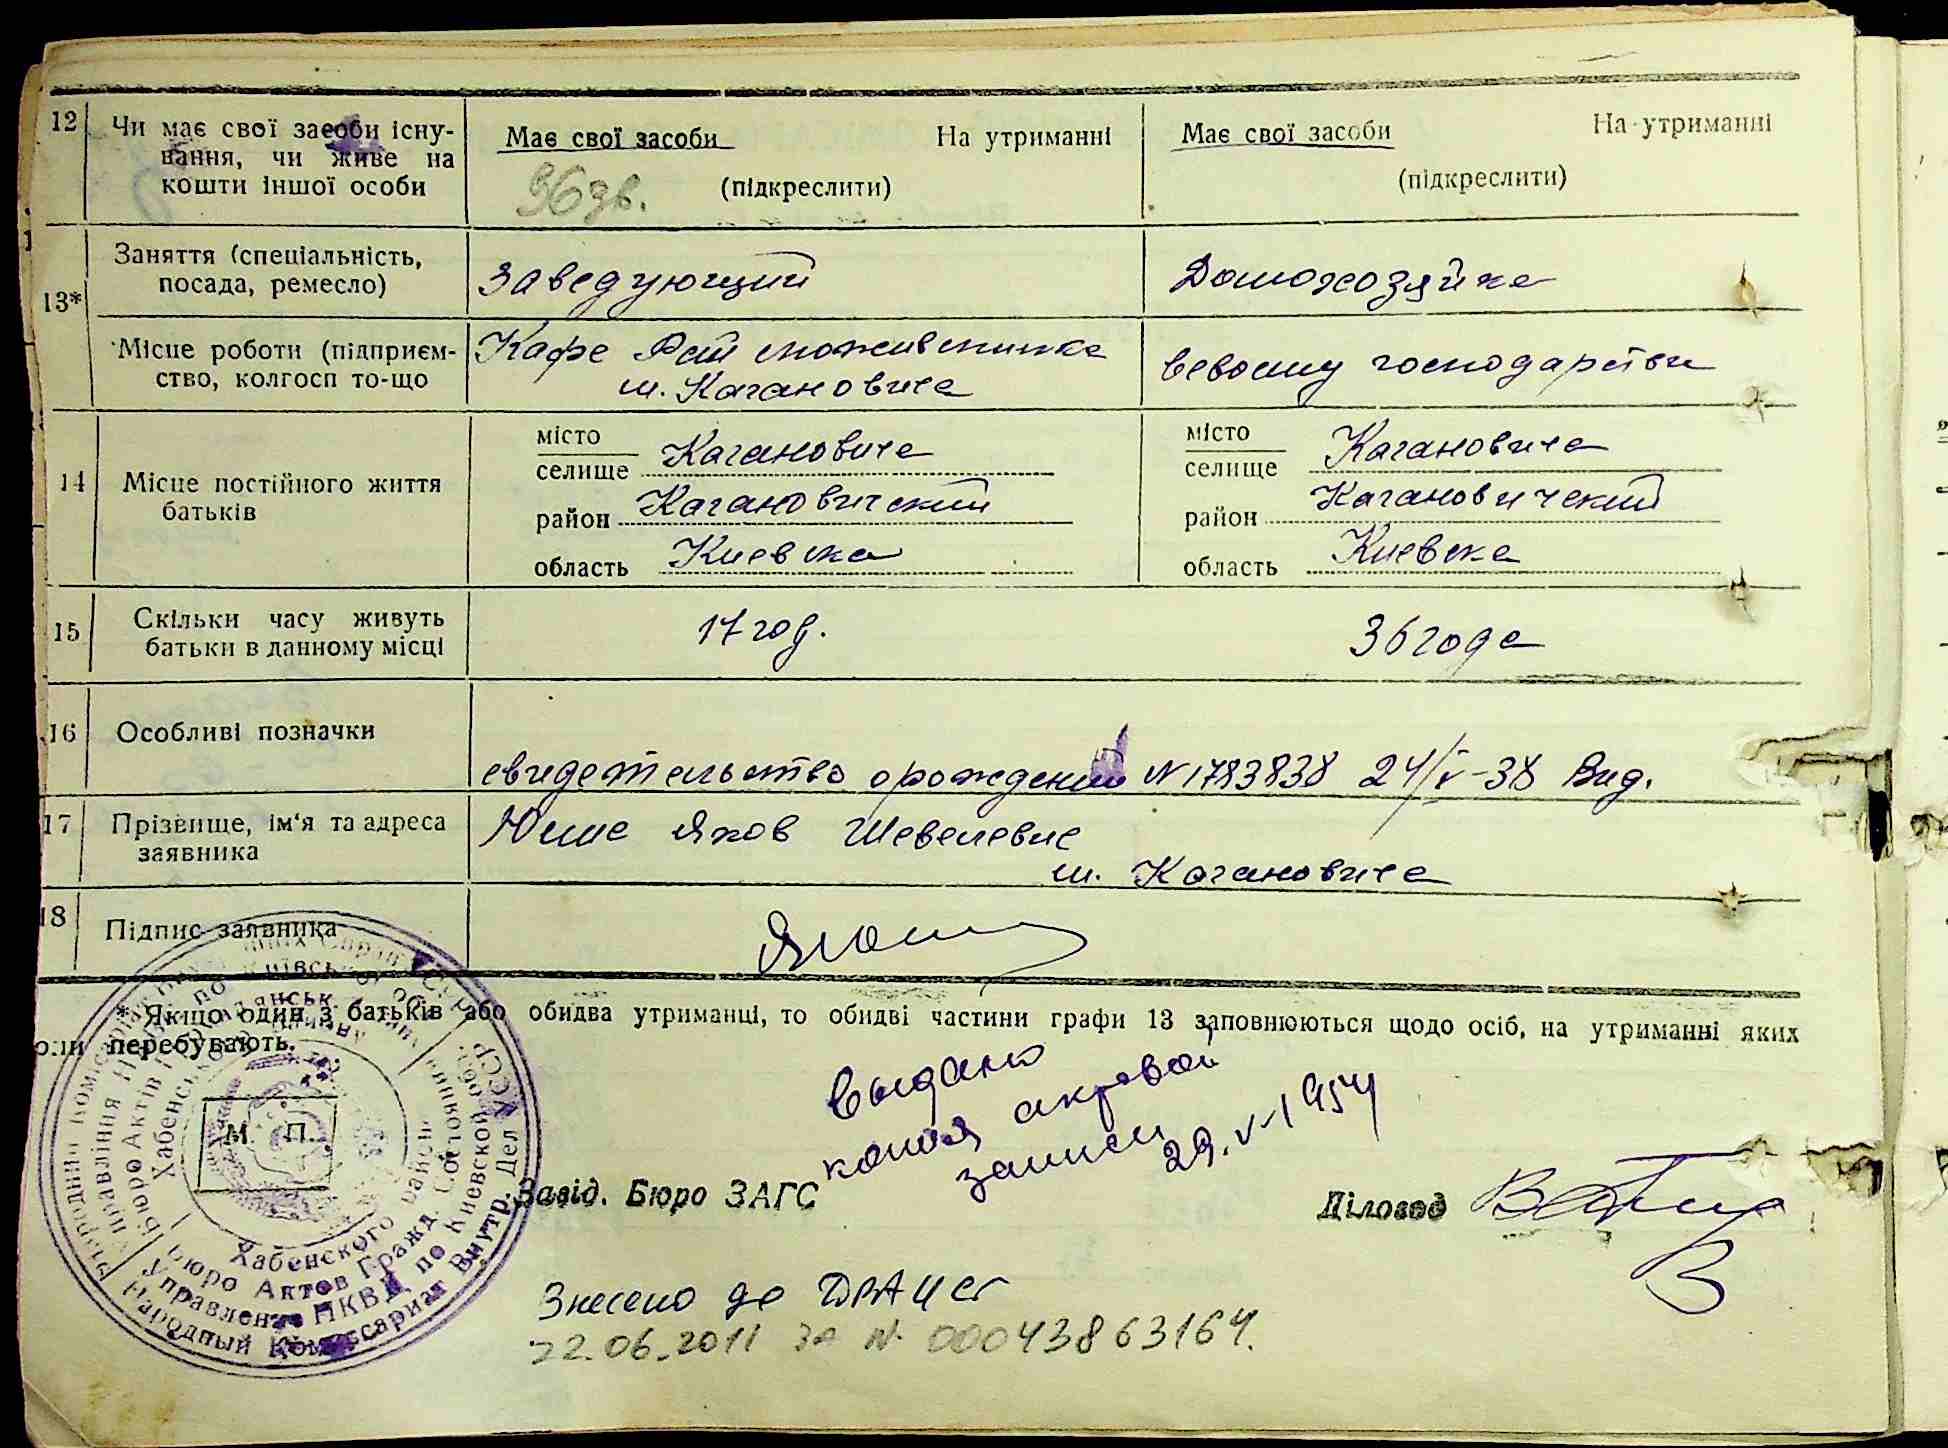 12
Чи має свої засоби існу-
вання, чи живе на
кошти іншої особи
Має свої засоби На утриманні
(підкреслити)
96 дв.
Має свої засоби На утриманні
(підкреслити)
13*
Заняття (спеціальність,
посада, ремесло)
Заведующий
Домохозяйка
Місце роботи (підприєм-
ство, колгосп то-що
Кафе Рай
м. Кагановича
господарстви
14
Місце постійного життя
батьків
місто
селище Кагановича
район Кагановический
область Киевска
місто
селище Кагановича
район Кагановичский
область Киевска
15
Скільки часу живуть
батьки в данному місці
17 год.
36 года
16
Особливі позначки
свидетельство о рождении N 1783838 24/V-38 Вид.
17
Прізвище, ім'я та адреса
заявника
Яков Шевелевич
м. Кагановича
18
Підпис заявника
* Якщо один з батьків або обидва утриманці, то обидві частини графи 13 заповнюються щодо осіб, на утриманні яких
они перебувають.
выдано
копия актовой
записи 29.V-1954
М. П.
Завід. Бюро ЗАГС
Діловод
Знесено до ДРАЦСг
22.06.2011 за N 00043863164.
Хабенского район
Бюро Актов Гражд. Состояния
Управление НКВД по Киевской обл.
Народный Комиссариат Внутр. Дел УССР.